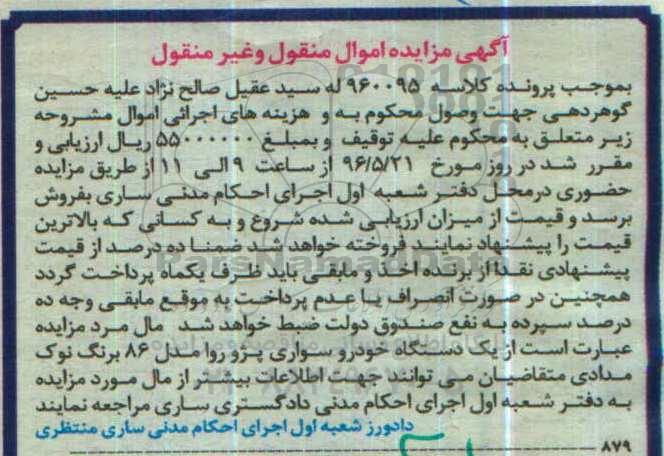 آگهی مزایده اموال منقول وغیر منقول
بموجب پرونده کلاسه ۹۶۰۰۹۵ له سید عقیل صالح نژاد علیه حسین
گوهردهی جهت وصول محکوم به و هزینه های اجرائی اموال مشروحه
زیر متعلق به محکوم علیه توقیف وبمبلغ ۵۵۰۰۰۰۰۰ ریال ارزیابی و
مقرر شد در روز مورخ ۹۶/۵/۲۱ از ساعت ۹ الی ۱۱ از طریق مزایده
حضوری درمحل دفتر شعبه اول اجرای احکام مدنی ساری بفروش
برسد و قیمت از میزان ارزیابی شده شروع و به کسانی که بالاترین
قیمت را پیشنهاد نمایند فروخته خواهد شد ضمنا ده درصد از قیمت
پیشنهادی نقدا از برنده اخذ و مابقی باید ظرف یکماه پرداخت گردد
همچنین در صورت انصراف یا عدم پرداخت به موقع مابقی وجه ده
درصد سپرده به نفع صندوق دولت ضبط خواهد شد مال مرد مزایده
عبارت است از یک دستگاه خودرو سواری پژو روا مدل ۸۶ برنگ نوک
مدادی متقاضیان می توانند جهت اطلاعات بیشتر از مال مورد مزایده
به دفتر شعبه اول اجرای احکام مدنی دادگستری ساری مراجعه نمایند
دادورز شعبه اول اجرای احکام مدنی ساری منتظری
۸۷۹
ParsNamadData